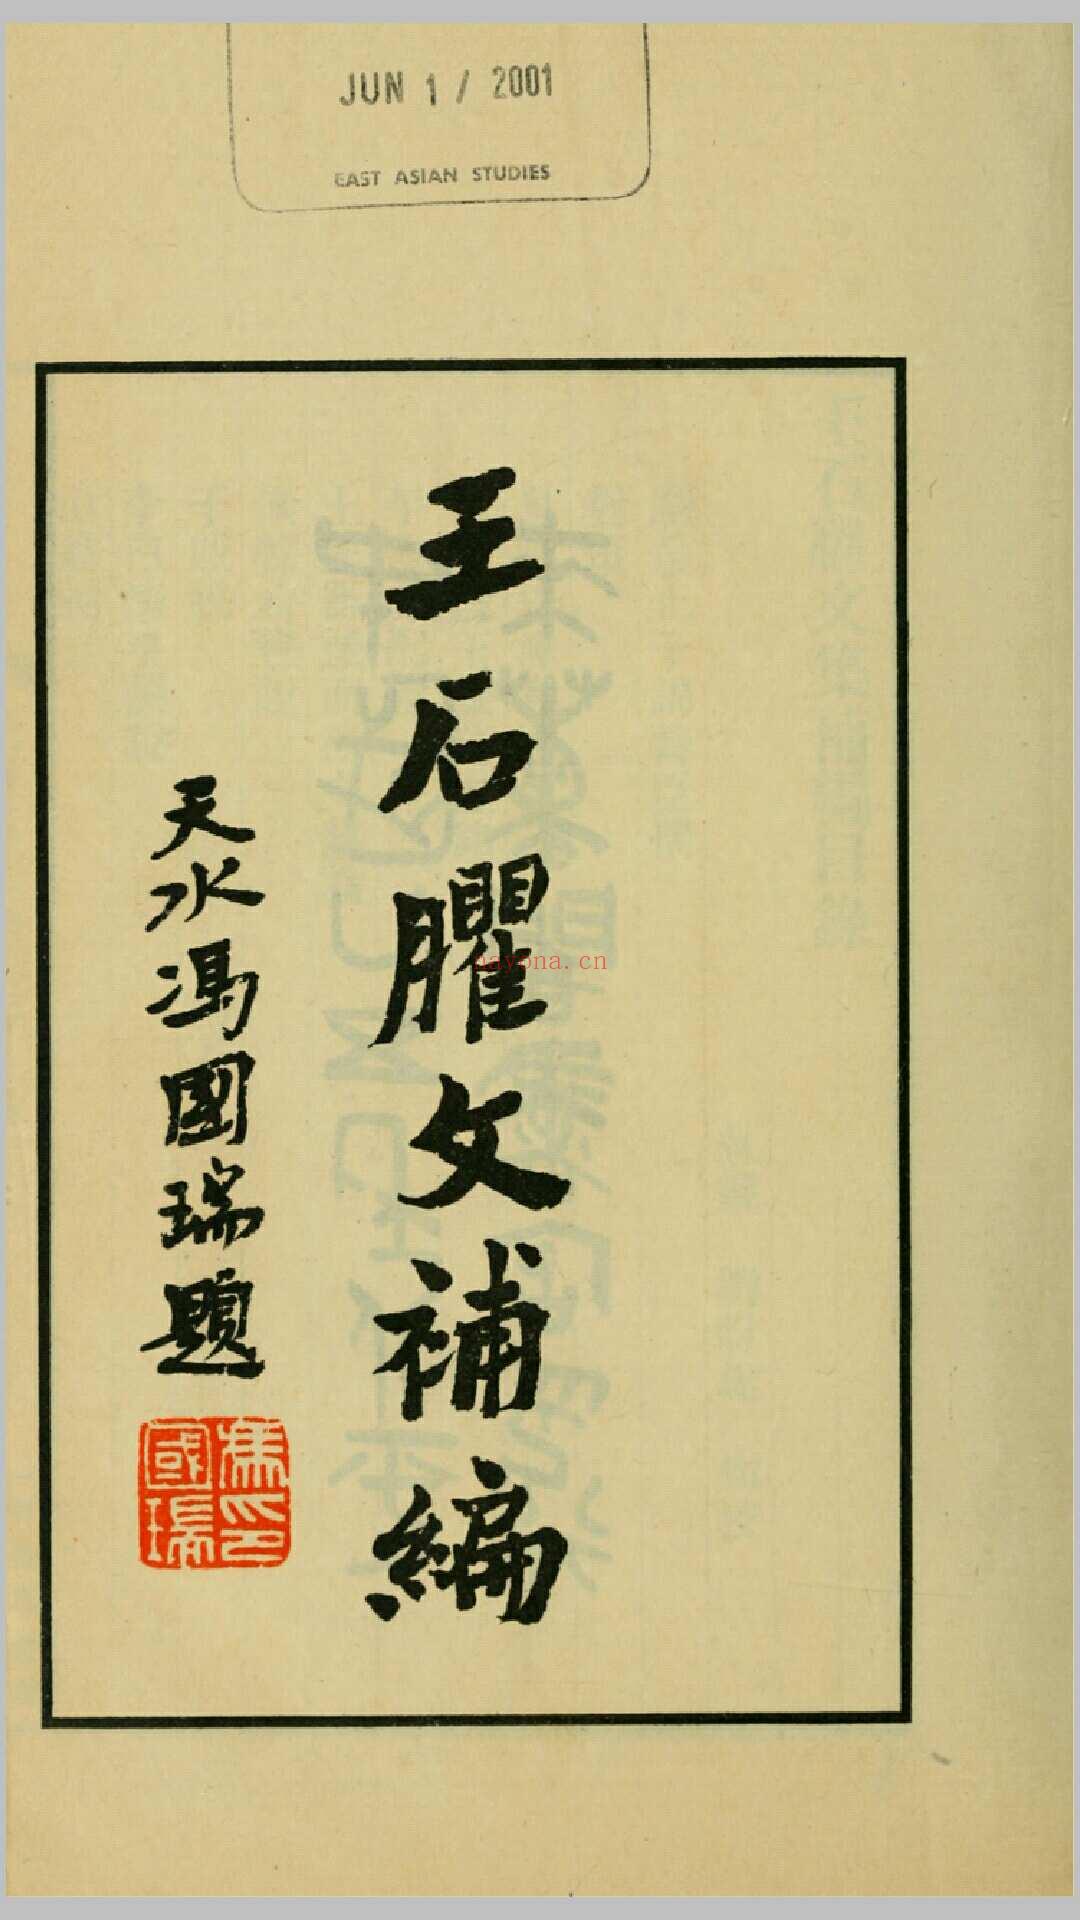 JUN 1 / 2001
EAST ASIAN STUDIES
王石臞文補編
天水馮國瑞題
馮印
國瑞
nayona.cn